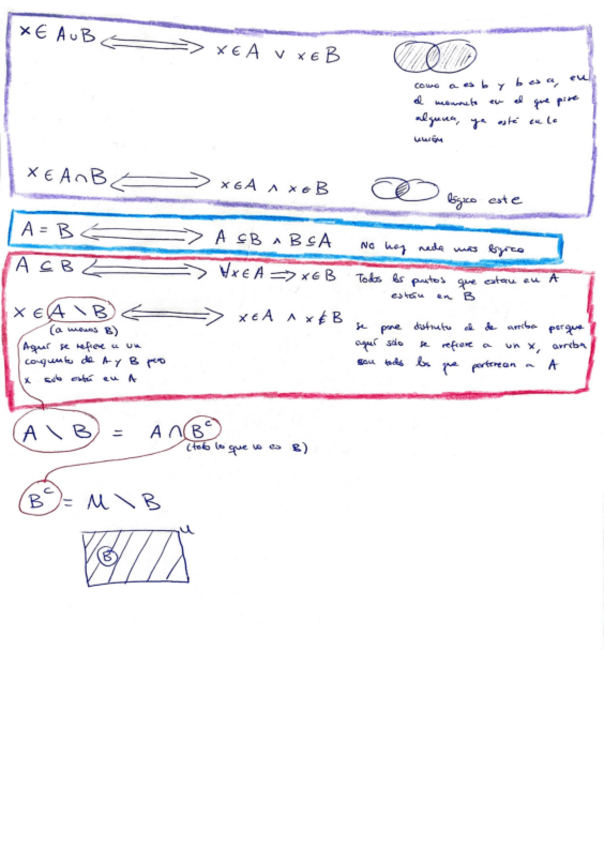 x ∈ A∪B ⟺ x ∈ A ∨ x ∈ B
como a es b y b es a, en
el momento en el que pise
alguna, ya está en la
unión
x ∈ A∩B ⟺ x ∈ A ∧ x ∈ B
lógico este
A = B ⟺ A ⊆ B ∧ B ⊆ A No hay nada más lógico
A ⊆ B ⟺ ∀x ∈ A ⟹ x ∈ B Todos los puntos que estan en A
están en B
x ∈ A \ B ⟺ x ∈ A ∧ x ∉ B
(a menos B)
Aquí se refiere a un
conjunto de A y B pero
x solo está en A
se pone distinto al de arriba porque
aquí sólo se refiere a un x, arriba
son todos los que pertenecen a A
A \ B = A ∩ Bᶜ
(todo lo que no es B)
Bᶜ = U \ B
U
B